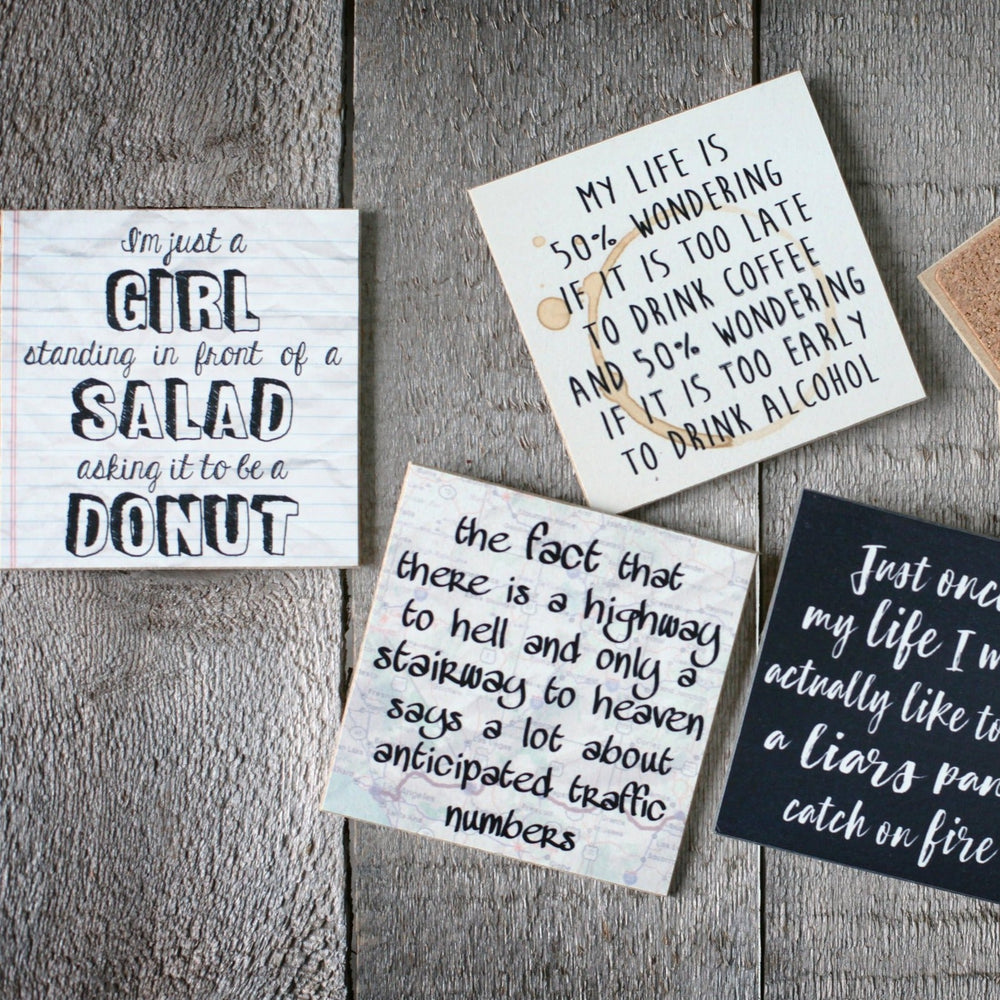 I'm just a
GIRL
standing in front of a
SALAD
asking it to be a
DONUT
MY LIFE IS
50% WONDERING
IF IT IS TOO LATE
TO DRINK COFFEE
AND 50% WONDERING
IF IT IS TOO EARLY
TO DRINK ALCOHOL
the fact that
there is a highway
to hell and only a
stairway to heaven
says a lot about
anticipated traffic
numbers
Just
my life I
actually like to
a liars
catch on fire